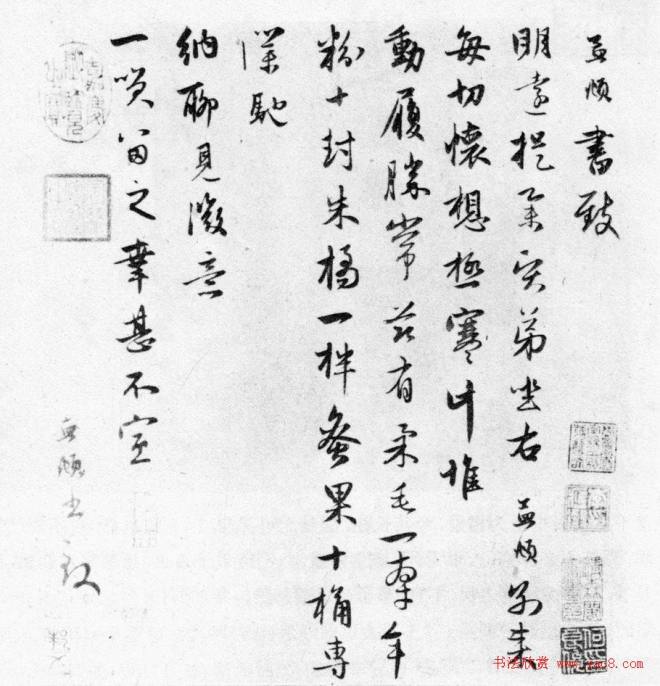 孟頫書致
明遠提舉賢弟坐右孟頫別來
每切懷想極寒計惟
動履勝常茲有柔毛一牽年
粉十封朱橘一柈蜜果十桶專
馳
納聊見微意
一笑留之幸甚不宣
孟頫書致
书法欣赏 www.yac8.com